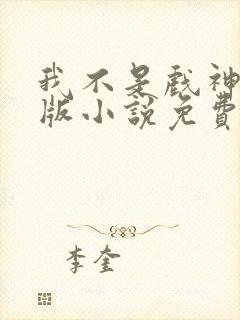 我不是戲神
版小說免費
李奎